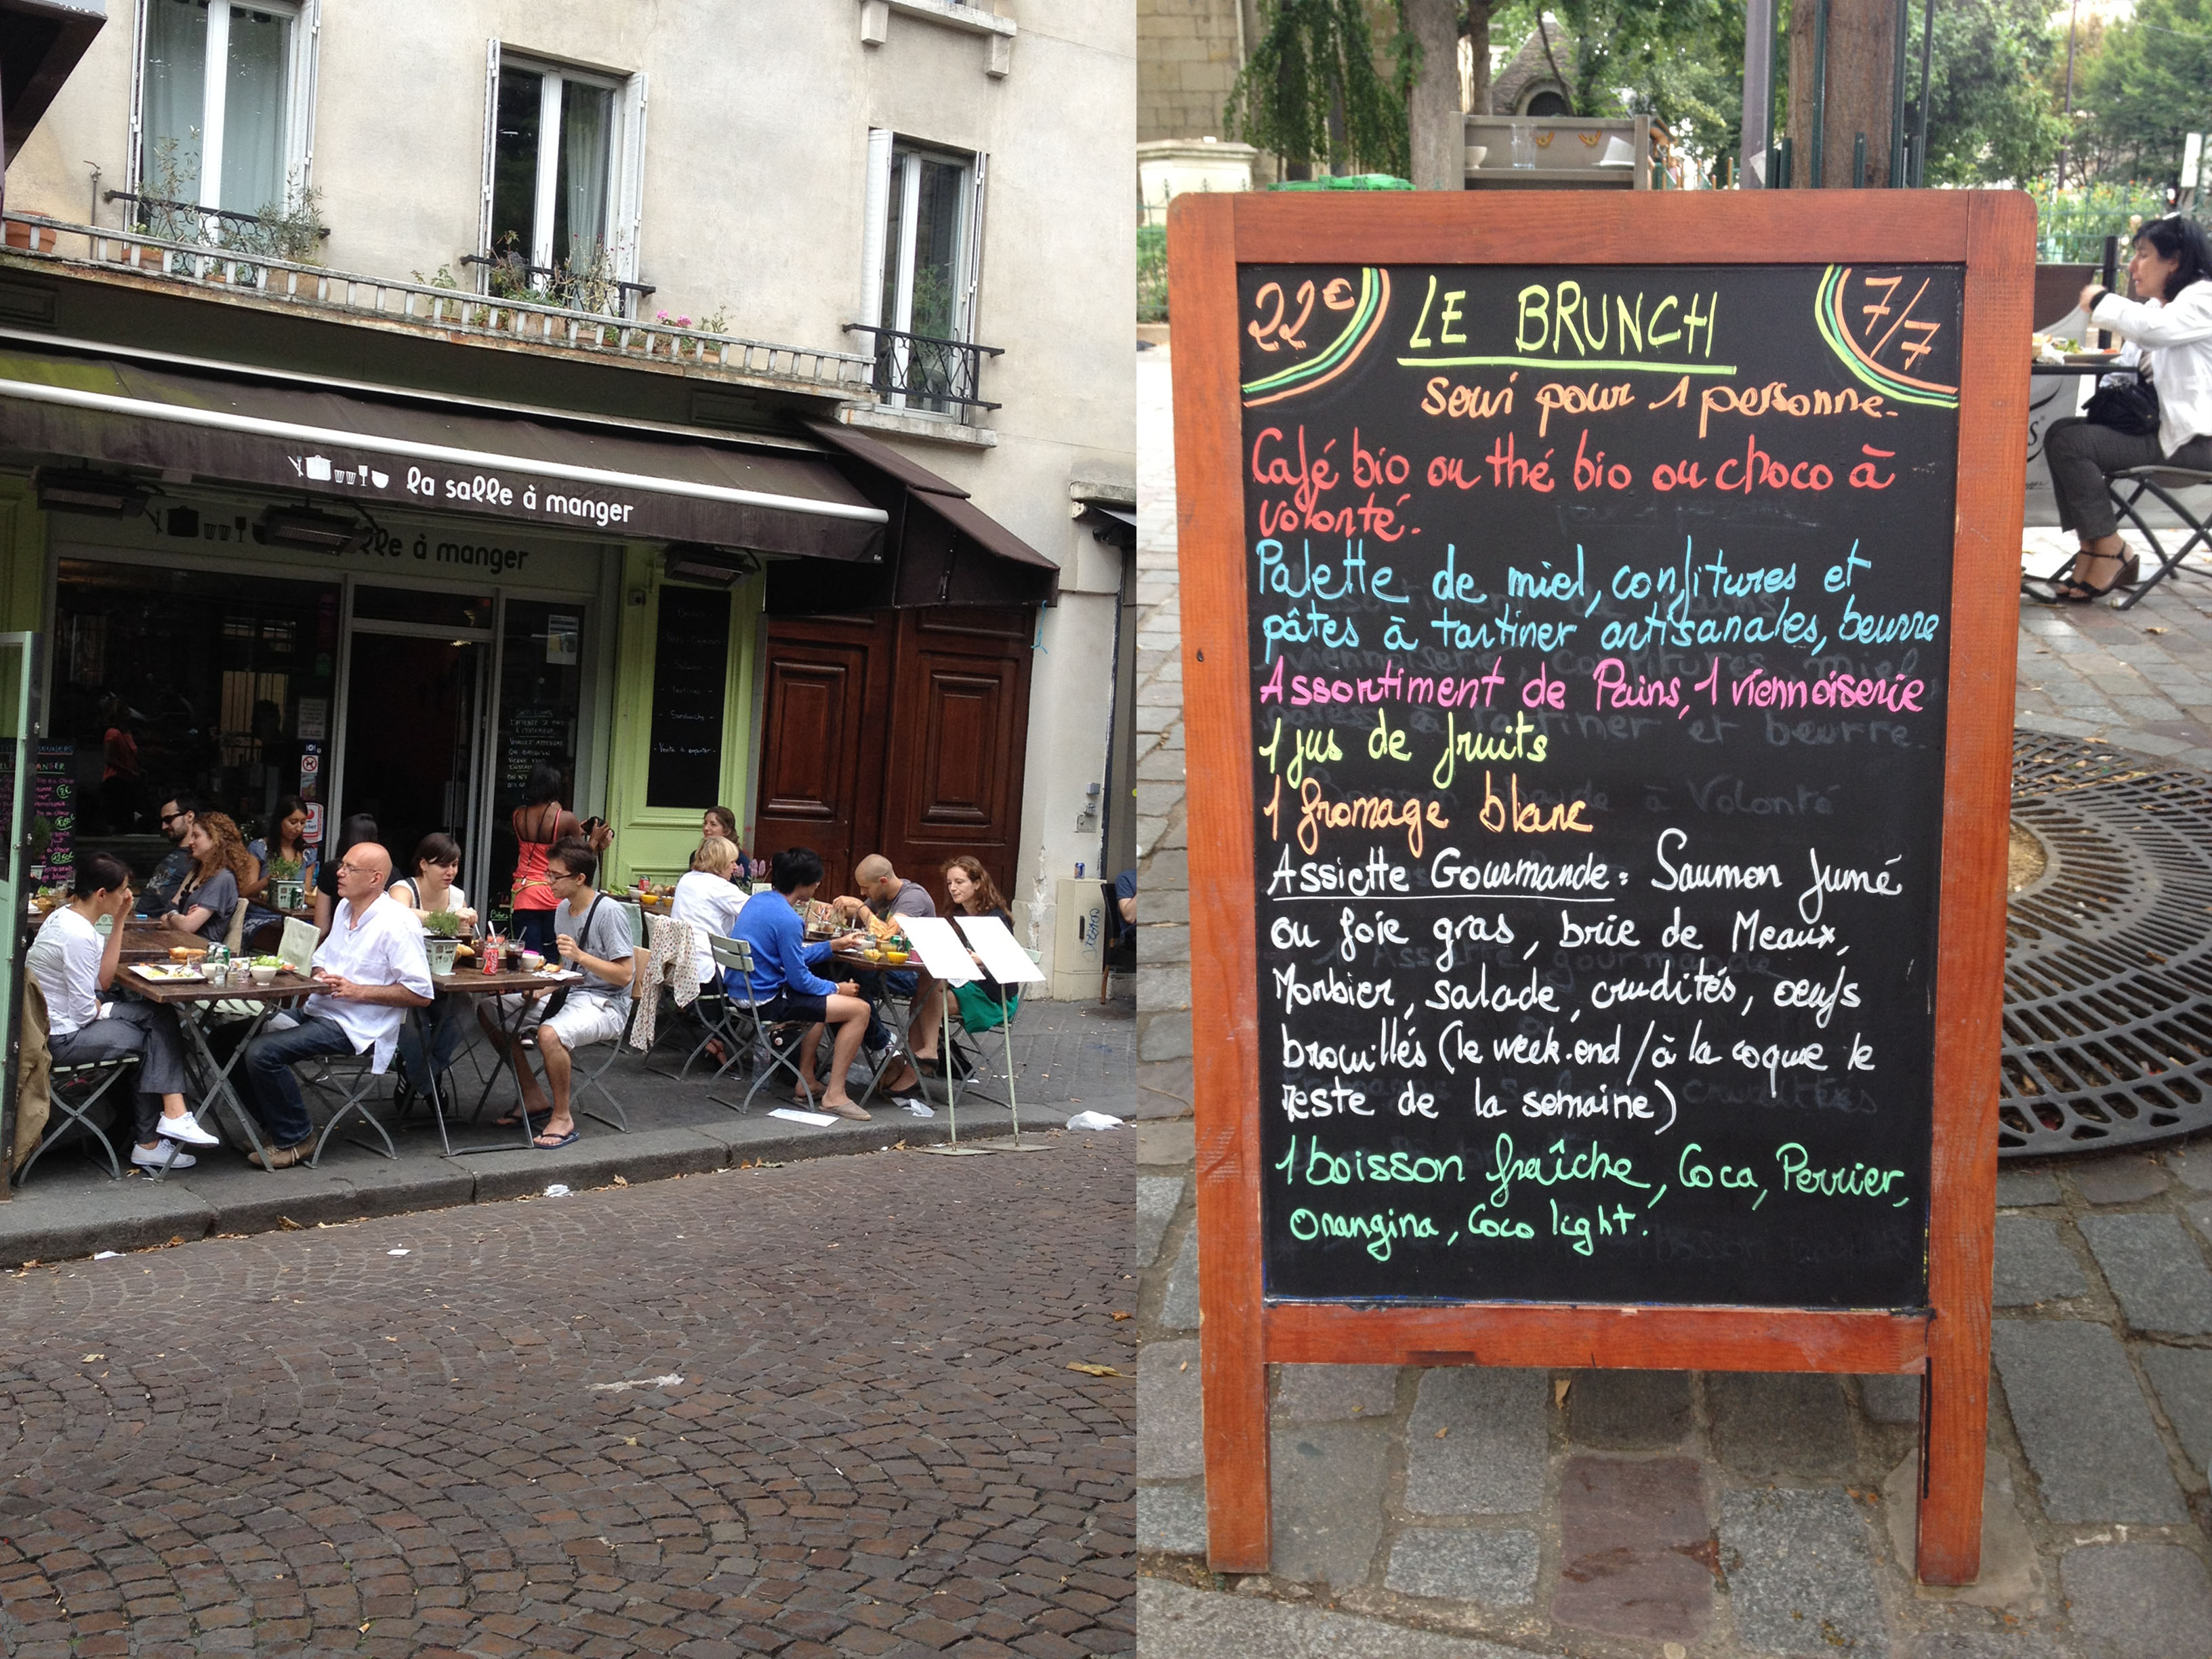 la salle à manger
lle à manger
- Salades -
- Tartines -
- Sandwichs -
- Vente à emporter -
22€
LE BRUNCH
7/7
servi pour 1 personne.
Café bio ou thé bio ou choco à
volonté.
Palette de miel, confitures et
pâtes à tartiner artisanales, beurre
Assortiment de Pains, 1 viennoiserie
1 jus de fruits
1 fromage blanc
Assiette Gourmande : Saumon fumé
ou foie gras, brie de Meaux,
Morbier, salade, crudités, oeufs
brouillés (le week-end / à la coque le
reste de la semaine)
1 boisson fraîche, Coca, Perrier,
Orangina, Coco light.